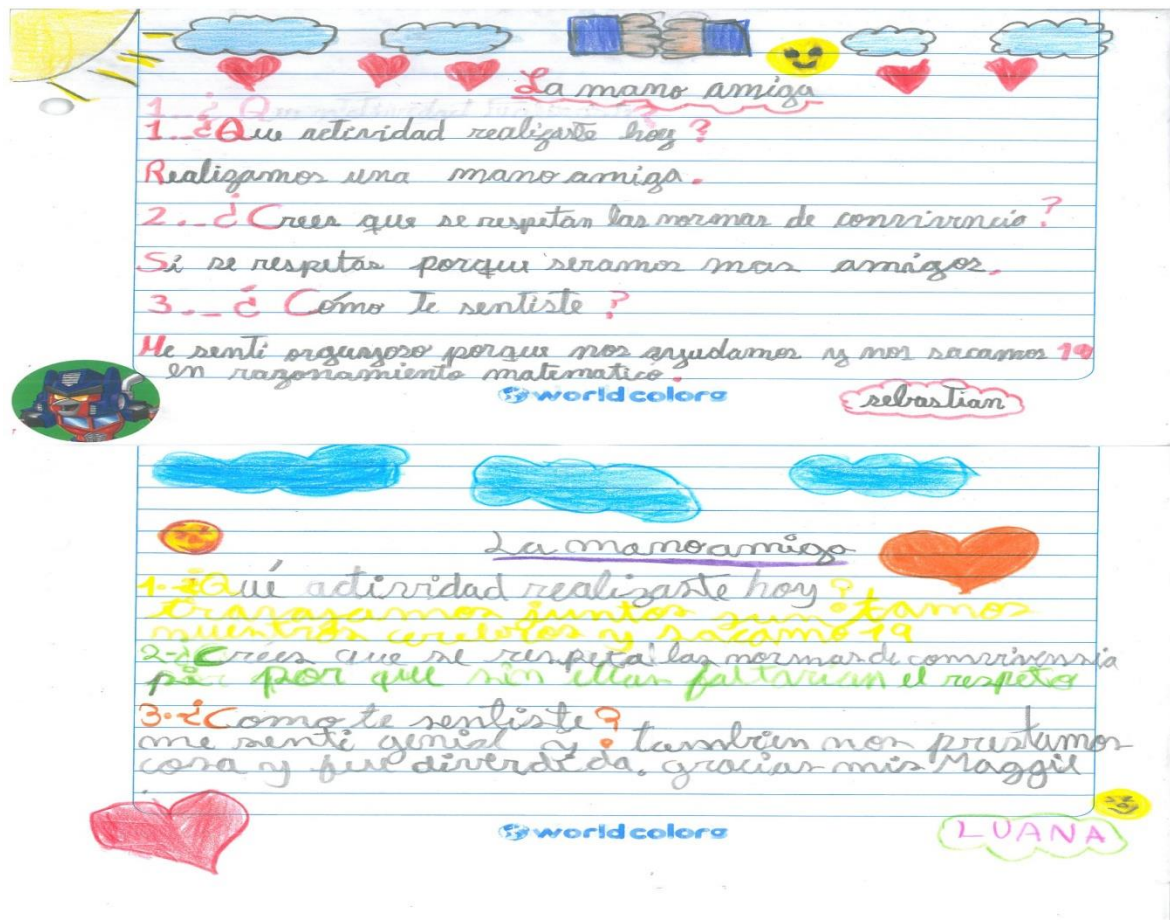 La mano amiga
1._ ¿Que actividad realizaste hoy?
Realizamos una mano amiga.
2._ ¿Crees que se respetan las normas de convivencia?
Si se respetas porque seramos mas amigos.
3._ ¿Cómo te sentiste?
Me senti orgunsoso porque nos ayudamos y nos sacamos 19
en razonamiento matematico.
world colors
sebastian
La mano amiga
1-¿Qué actividad realizaste hoy?
juntos
nuentros y sacamo 19
2-¿Crées que se respeta las normas de convivensia
por que sin ellas faltarian el respeto
3-¿Como te sentiste?
me senti genial y tambien nos prestamos
cosa y fue diverdida. gracias mis Maggie
world colors
LUANA